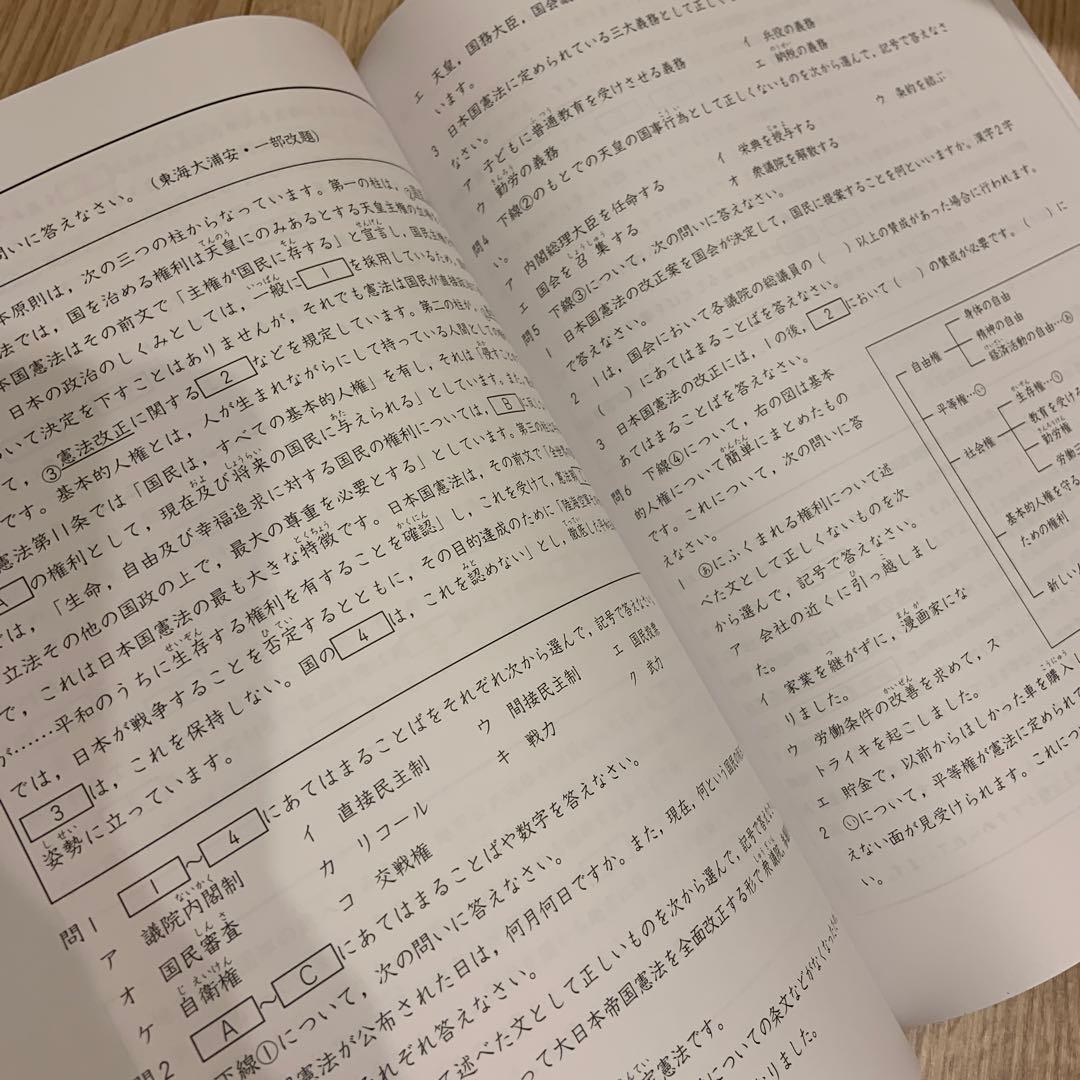 (東海大浦安・一部改題)
問いに答えなさい。
本原則は、次の三つの柱からなっています。第一の柱は、②
法では、国を治める権利は天皇にのみあるとする天皇主権の
本国憲法はその前文で「主権が国民に存する」と宣言し、国民主権
日本の政治のしくみとしては、一般に 1 を採用しているため、
おいて決定を下すことはありませんが、それでも憲法は国民が直接
て、③憲法改正に関する 2 などを規定しています。第二の柱が、
です。基本的人権とは、人が生まれながらにして持っている人間としての
憲法第11条では「国民は、すべての基本的人権」を有し、それは「侵すことの
A の権利として、現在及び将来の国民に与えられる」としています。また、
では、「生命、自由及び幸福追求に対する国民の権利については、 B に
立法その他の国政の上で、最大の尊重を必要とする」としています。第三の柱
で、これは日本国憲法の最も大きな特徴です。日本国憲法は、その前文で「全世界の
が……平和のうちに生存する権利を有することを確認」し、これを受けて、憲法第
では、日本が戦争することを否定するとともに、その目的達成のために「陸海空軍
3 は、これを保持しない。国の 4 は、これを認めない」とし、徹底した平和
姿勢に立っています。
問1 1 ～ 4 にあてはまることばをそれぞれ次から選んで、記号で答えなさい。
ア 議院内閣制 イ 直接民主制 ウ 間接民主制 エ 国民投票
オ 国民審査 カ リコール キ 戦力 ク 武力
ケ 自衛権 コ 交戦権
問2 A ～ C にあてはまることばや数字を答えなさい。
下線①について、次の問いに答えなさい。
国憲法が公布された日は、何月何日ですか。また、現在、何という国民の
それぞれ答えなさい。
て述べた文として正しいものを次から選んで、記号で答え
って大日本帝国憲法を全面改正する形で衆議院、
憲法です。
についての条文などがなくなった
わりました。
エ 天皇，国務大臣，国会議
います。
3 日本国憲法に定められている三大義務として正しく
なさい。
ア 子どもに普通教育を受けさせる義務 イ 兵役の義務
ウ 勤労の義務 エ 納税の義務
問4 下線②のもとでの天皇の国事行為として正しくないものを次から選んで、記号で答えなさ
い。
ア 内閣総理大臣を任命する イ 栄典を授与する ウ 条約を結ぶ
エ 国会を召集する オ 衆議院を解散する
問5 下線③について、次の問いに答えなさい。
1 日本国憲法の改正案を国会が決定して、国民に提案することを何といいますか。漢字2字
で答えなさい。
2 1は、国会において各議院の総議員の（ ）以上の賛成があった場合に行われます。
（ ）にあてはまることばを答えなさい。
3 日本国憲法の改正には、1の後、 2 において（ ）の賛成が必要です。（ ）に
あてはまることばを答えなさい。
問6 下線④について、右の図は基本
的人権について簡単にまとめたもの
です。これについて、次の問いに答
えなさい。
1 あにふくまれる権利について述
べた文として正しくないものを次
から選んで、記号で答えなさい。
ア 会社の近くに引っ越しまし
た。
イ 家業を継がずに，漫画家にな
りました。
ウ 労働条件の改善を求めて，ス
トライキを起こしました。
エ 貯金で，以前からほしかった車を購入し
2 いについて，平等権が憲法に定められて
えない面が見受けられます。これにつ
い。
自由権
身体の自由
精神の自由
経済活動の自由…あ
平等権…い
社会権
生存権…う
教育を受ける
勤労権
労働三
基本的人権を守る
ための権利
新しい人